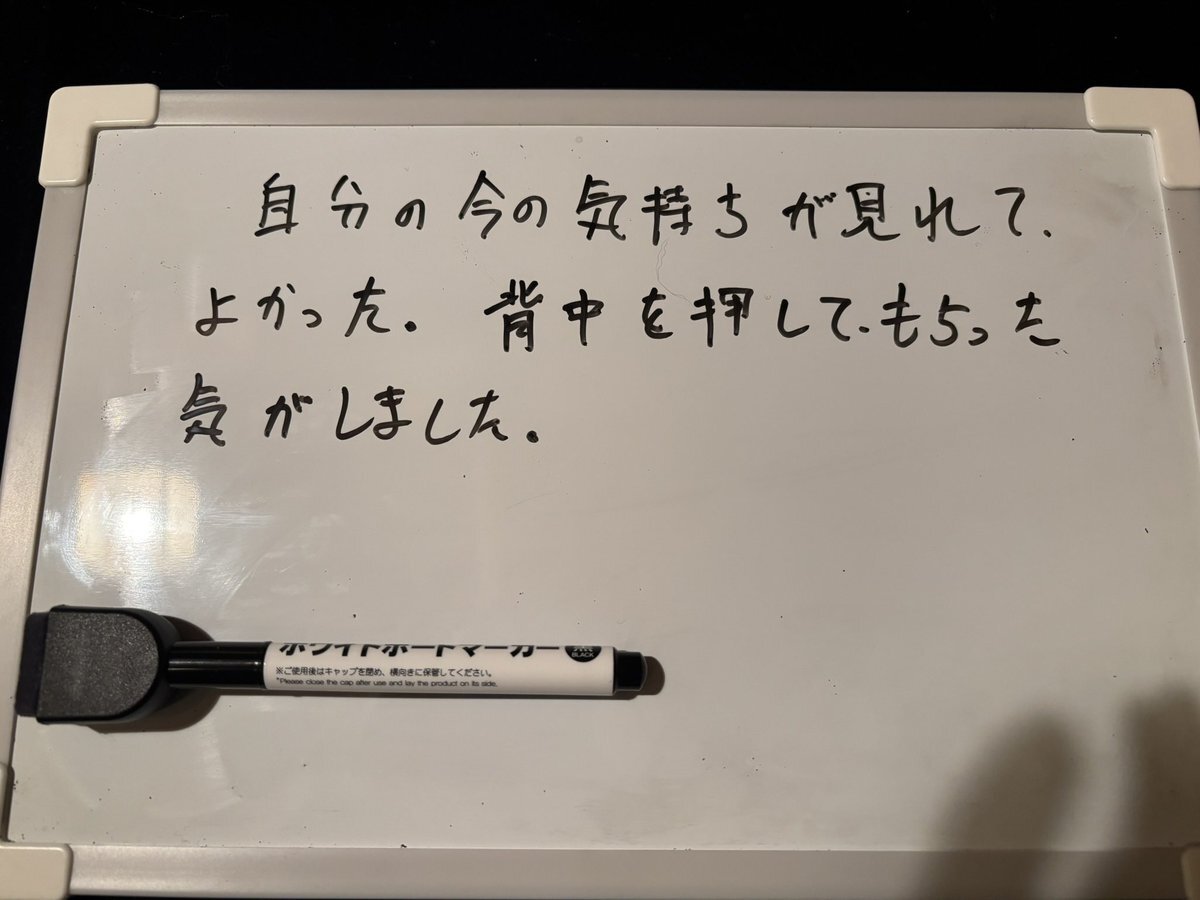 自分の今の気持ちが見れて、
よかった。背中を押してもらった
気がしました。
ホワイトボードマーカー
BLACK
※ご使用後はキャップを閉め、横向きに保管してください。
*Please close the cap after use and lay the product on its side.